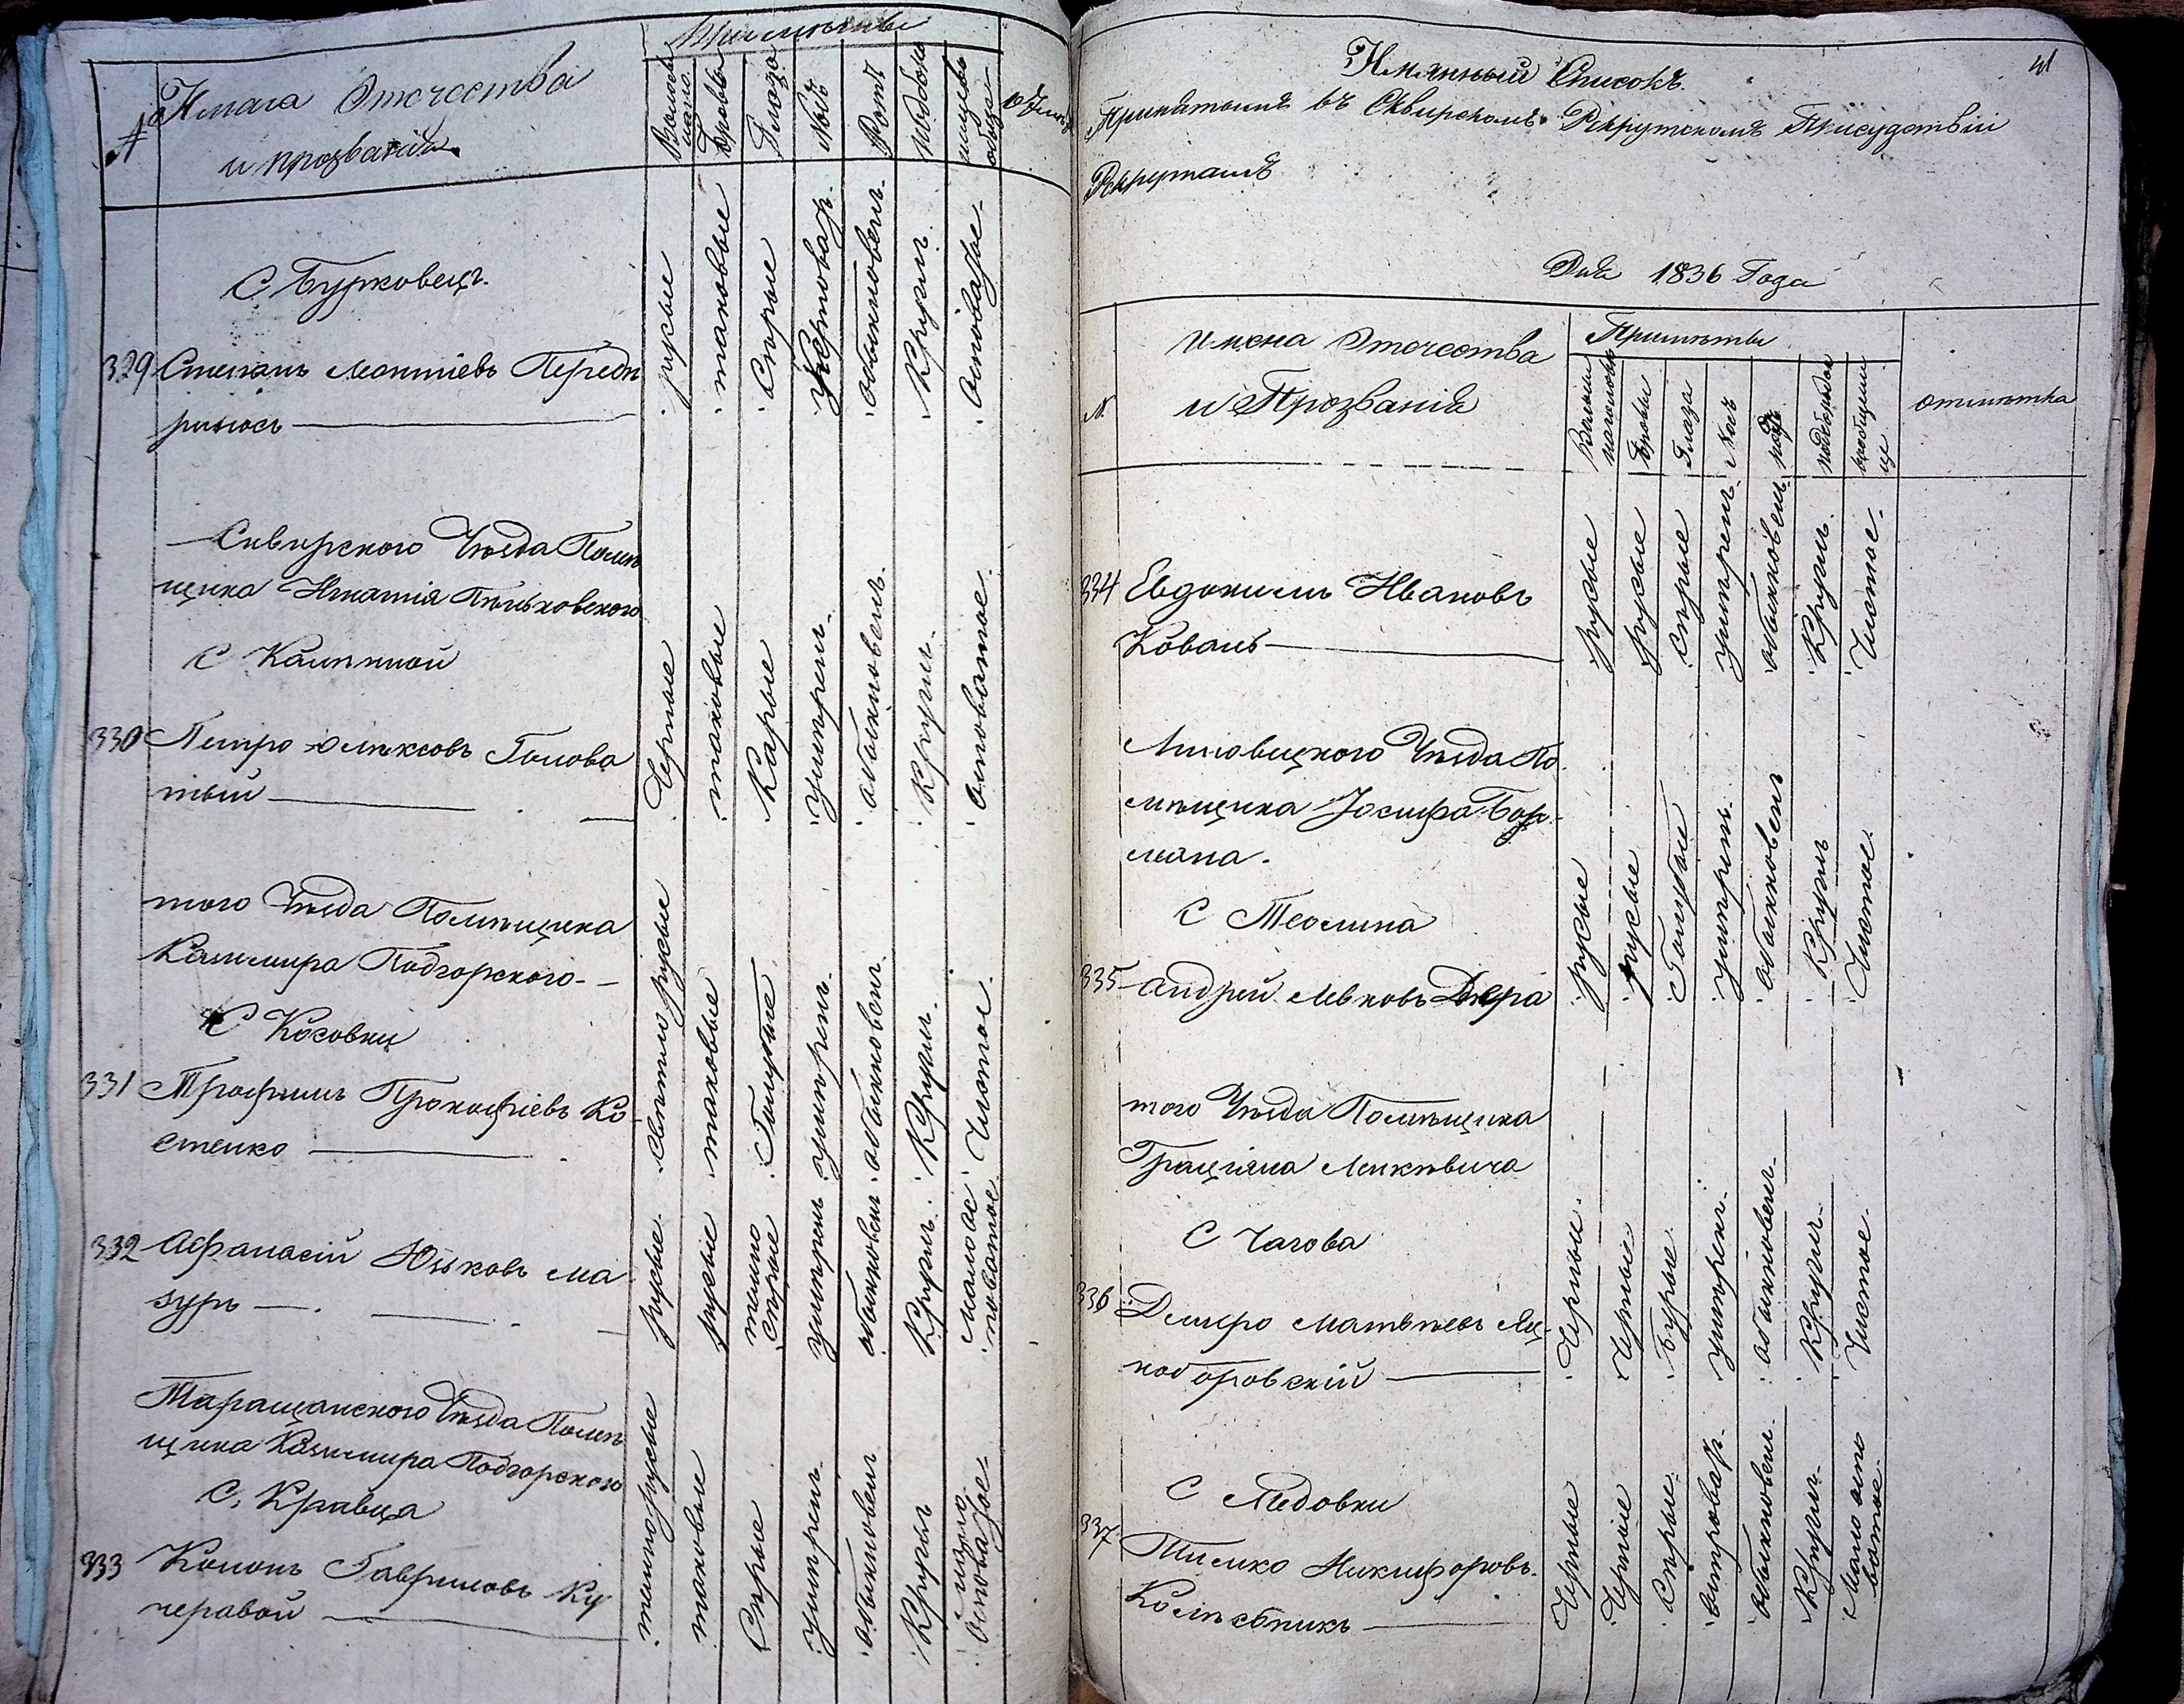 №
Имена Отчества
и прозванія
Примѣты
Волосы
Бровы
Глаза
Носъ
Ротъ
подбородок
лице вообще
С Бурковец.
329 Степанъ Леонтіевъ Передѣ
рыюсъ
русые
таковые
Сѣрые
обыкновен.
Кругл.
Осповатое.
Сквирского Уѣзда Помѣ
щика Игнатія Пѣньковского
С Каменной
330 Петро Олексовъ Голова
тый
Черные
таковые
Карые
умѣрен.
обыкновенъ.
Кругл.
Осповатое.
того Уѣзда Помѣщика
Казимира Подгорского
С Косовки
331 Трофимъ Прокофіевъ Ко
стенко
Свѣтло русые
таковые
Голубые
умѣренъ.
обыкновен.
Кругл.
Чистое.
332 Афанасій Юськовъ Ма
зуръ
русые
русые
темно сѣрые
умѣренъ
обыкновен
Кругл.
мало ос
поватое
Таращанского Уѣзда Помѣ
щика Казимира Подгорского
С. Кравца
333 Кононъ Гавриловъ Ку
черавой
темнорусые
таковые
Сѣрые
умѣрен.
обыкновен
Кругл
мало
осповатое
41
Имянный Списокъ.
Принятымъ въ Сквирскомъ Рекрутскомъ Присудствіи
Рекрутамъ
Дня 1836 Года
№
Имена Отчества
и Прозванія
Примѣты
Волосы
на головѣ
Бровы
Глаза
Носъ
подбородок
отмѣтка
334 Евдокимъ Ивановъ
Коваль
русые
русые
Сѣрые
умѣрен.
обыкновен.
Кругл.
Чистое.
Липовецкого Уѣзда По
мѣщика Іосифа Бор
мана.
С Теолина
335 Андрей Левковъ Дзюра
русые
русые
Голубые
умѣрен.
обыкновен
Кругл
Чистое.
того Уѣзда Помѣщика
Граціяна Ленкевича
С Чагова
336 Демро Матвѣевъ Яц
коборовскій
Черные.
Черные.
Бурые.
умѣрен.
обыкновен.
Кругл.
Чистое.
С Медовки
337 Тимко Никифоровъ.
Колѣсникъ
Черные
Черные
Сѣрые.
островар.
обыкновен.
Кругл.
Мало оспо
ватое.